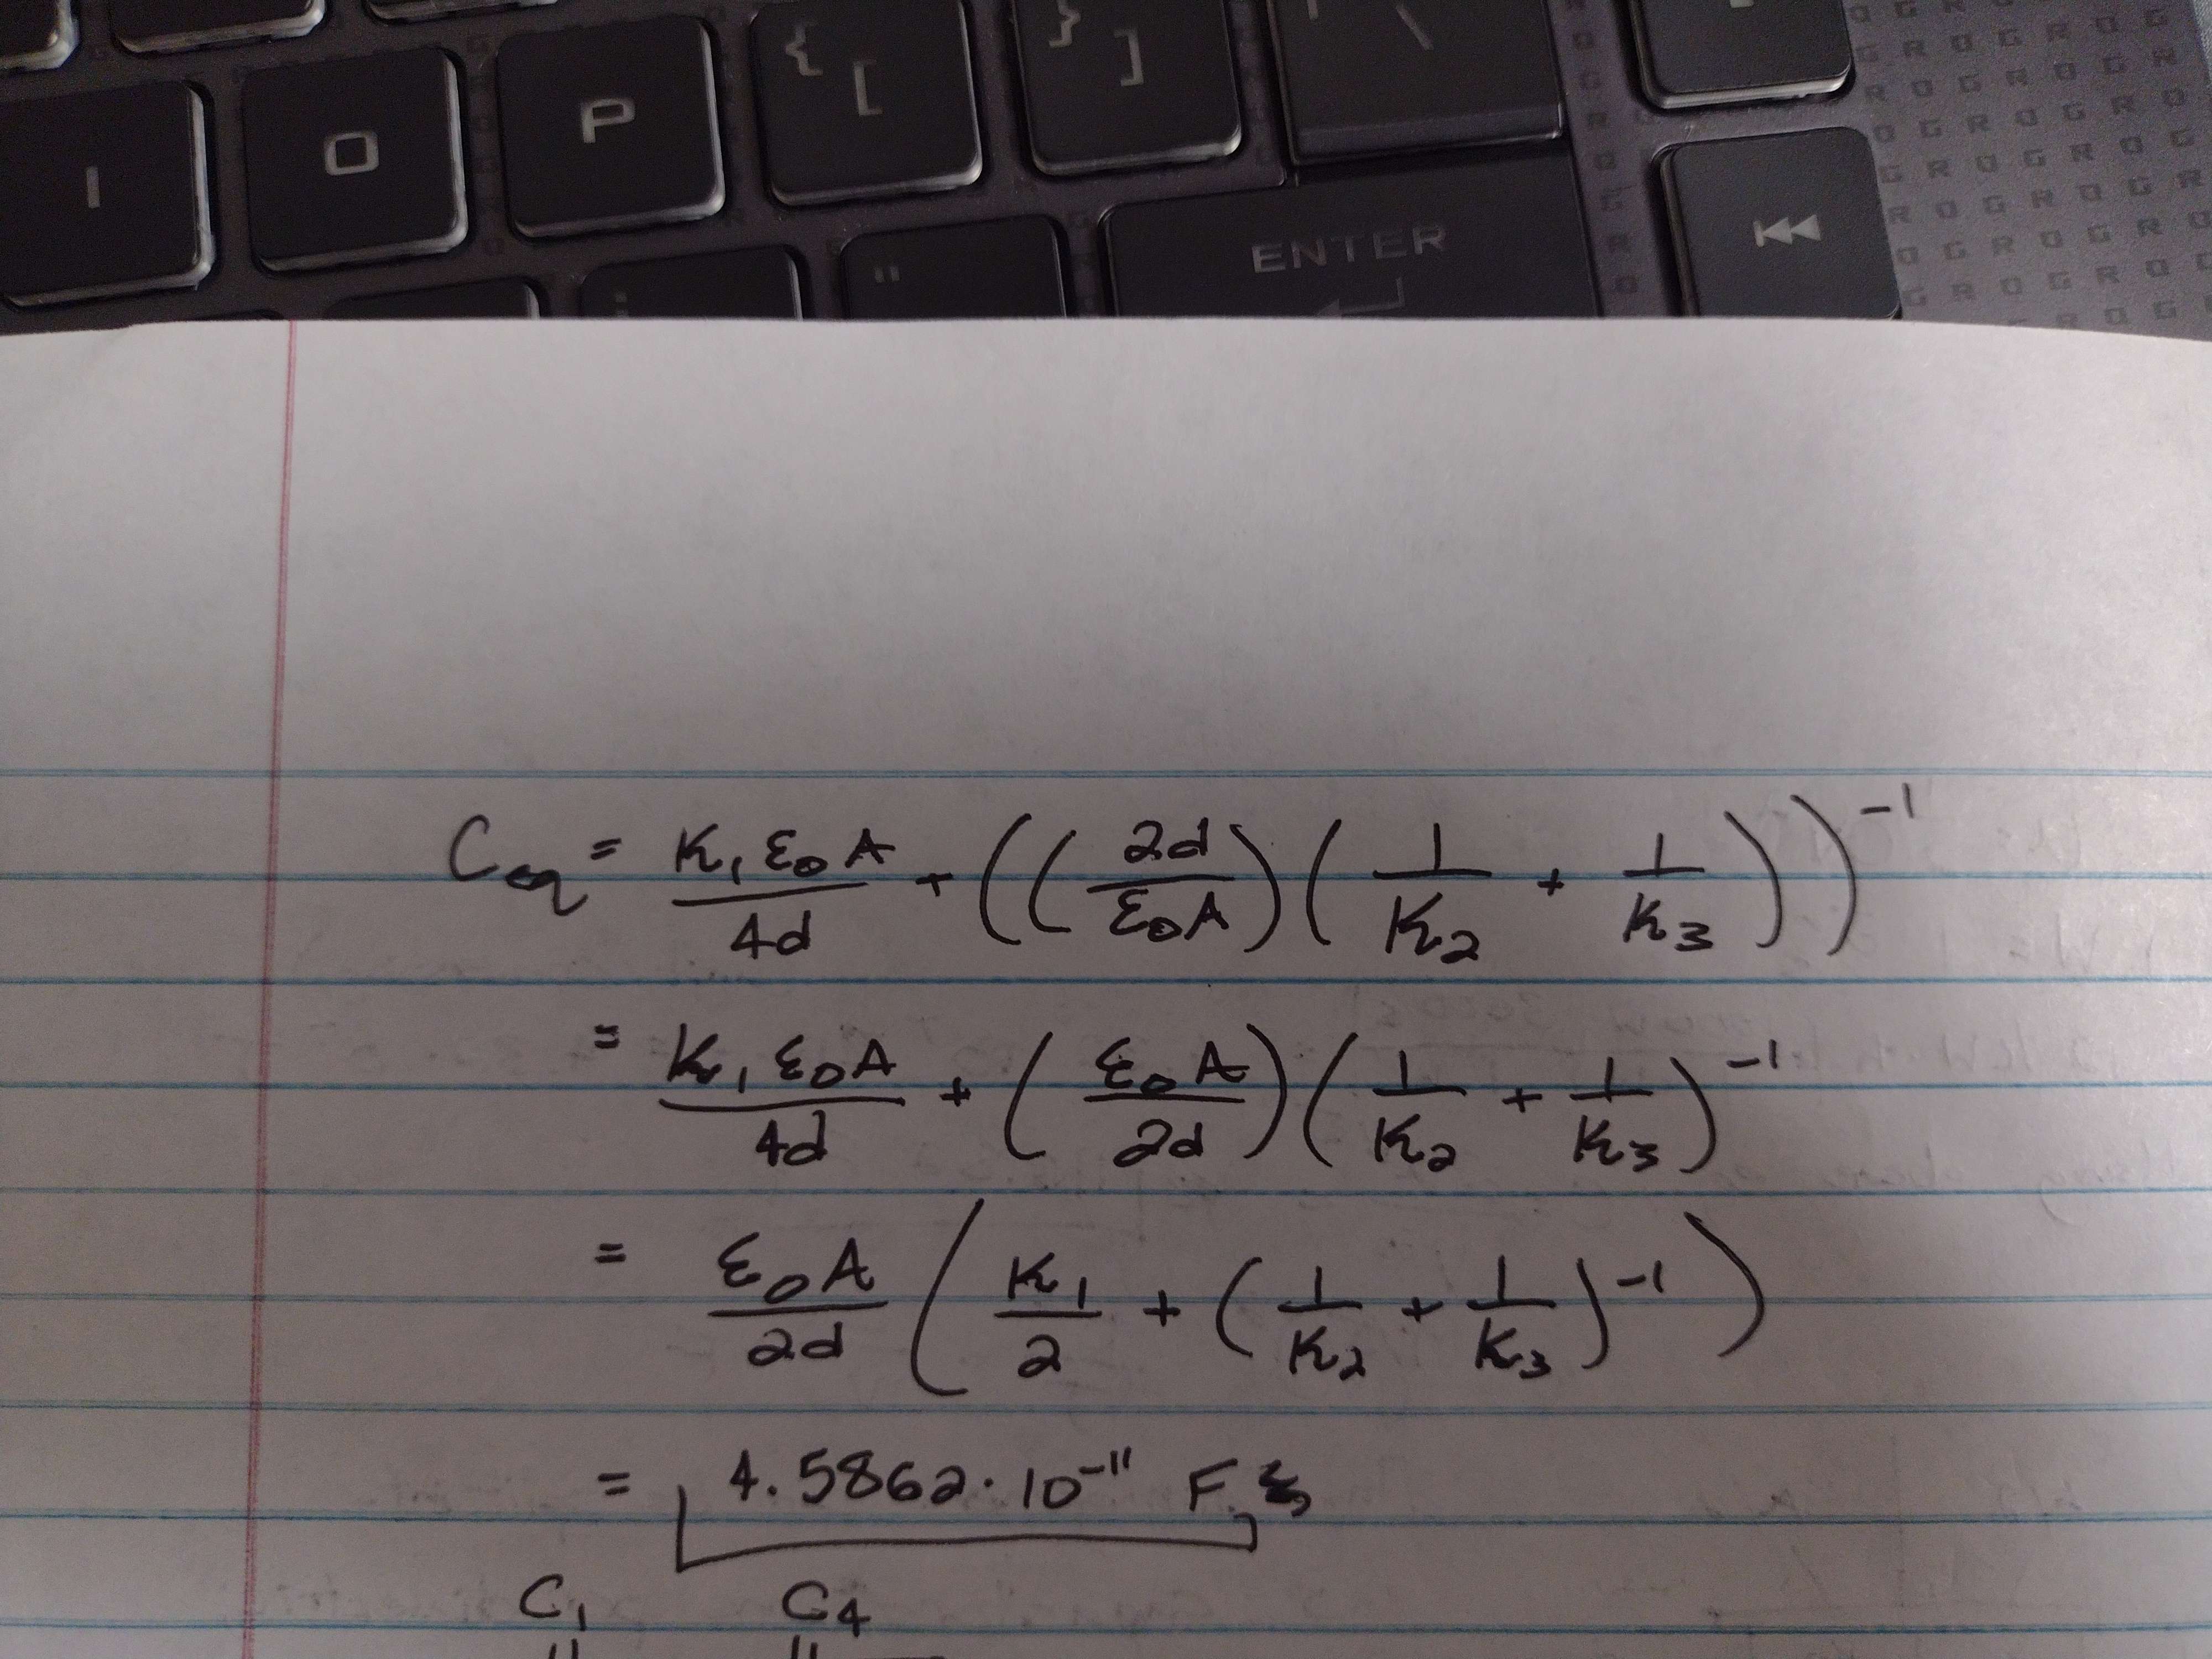 { [ } ] | \
I O P
" ENTER
C_eq = K₁ε₀A / 4d + ((2d / ε₀A)(1/K₂ + 1/K₃))⁻¹
= K₁ε₀A / 4d + (ε₀A / 2d)(1/K₂ + 1/K₃)⁻¹
= ε₀A / 2d (K₁/2 + (1/K₂ + 1/K₃)⁻¹)
= 4.5862 · 10⁻¹¹ F
C₁ C₄